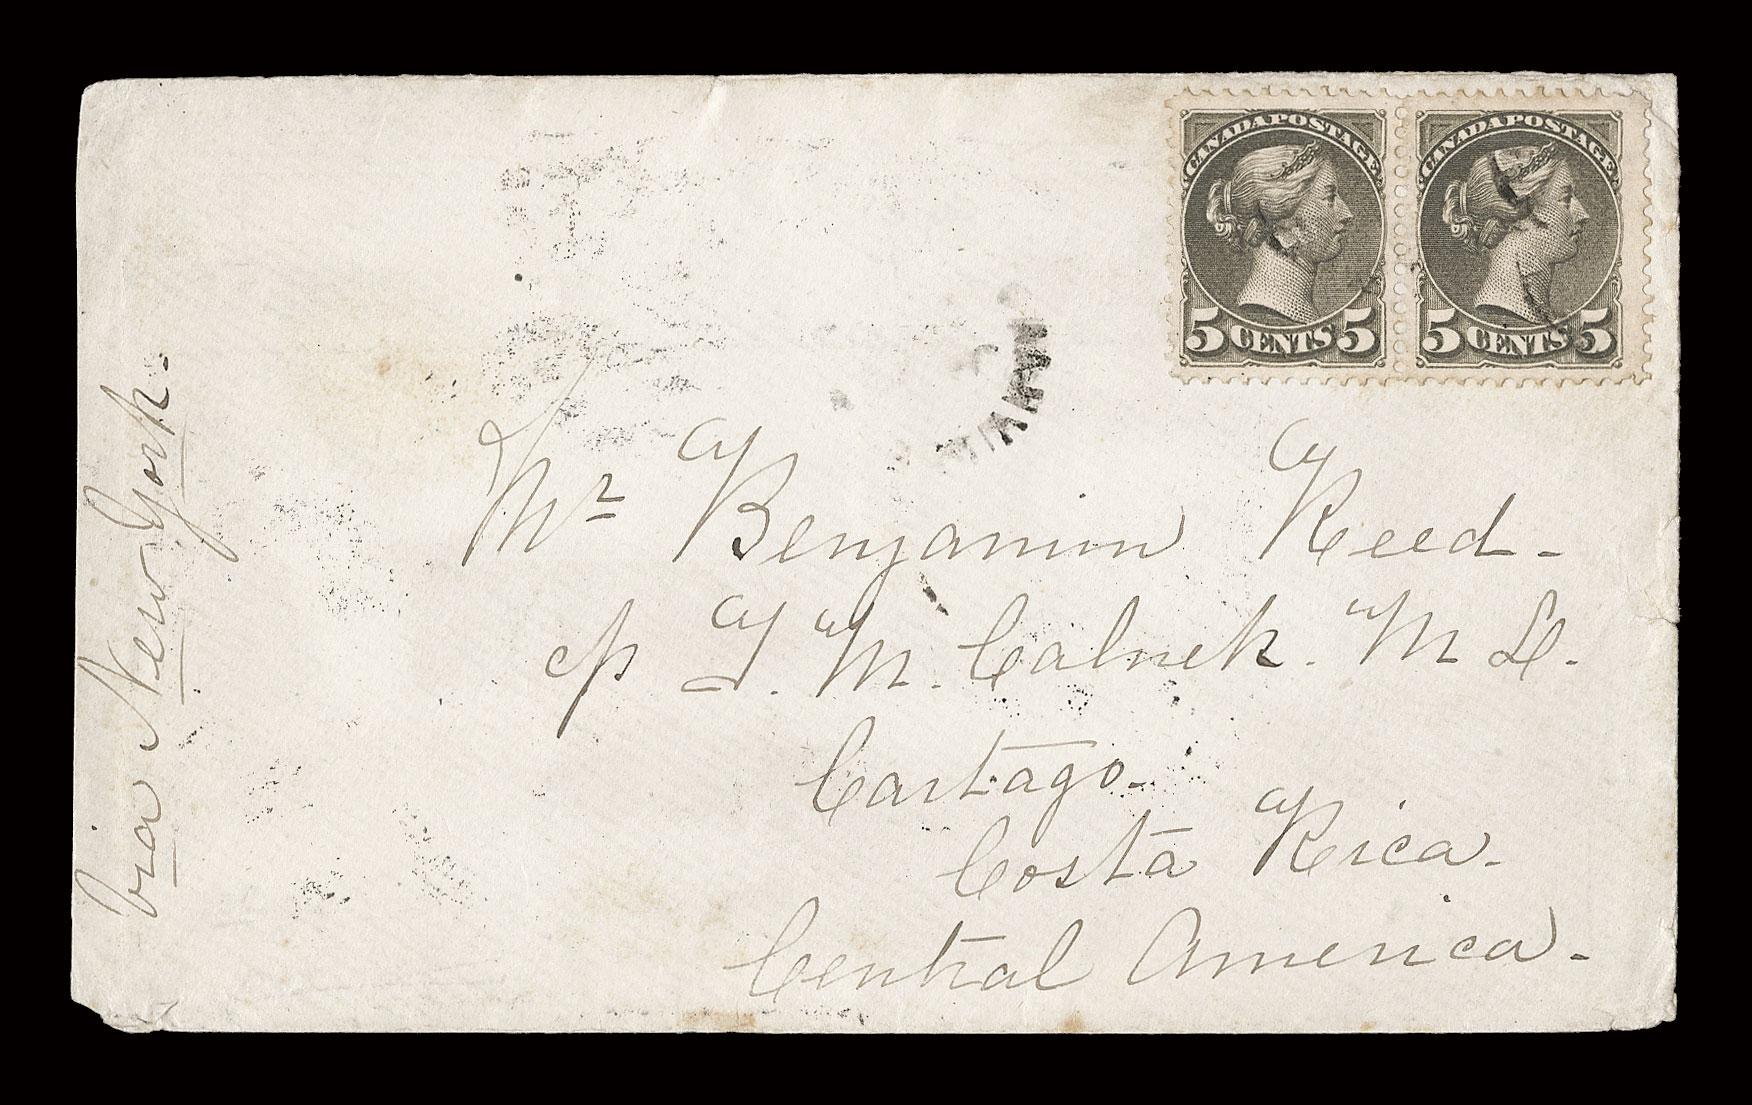 CANADA POSTAGE
5 CENTS 5
CANADA POSTAGE
5 CENTS 5
Via New York.
Mr Benjamin Reed -
c/o J. M. Calnek. M D.
Cartago -
Costa Rica -
Central America -